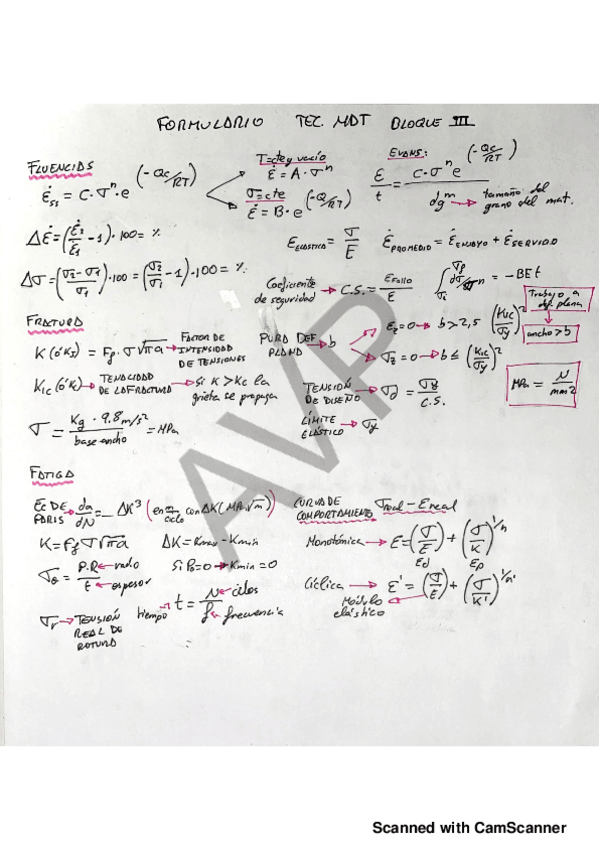 FORMULARIO TEC. MDT BLOQUE III
FLUENCIAS
ε̇ss = C·σ^n·e^(-Qc/RT)
T=cte y vacío
ε̇ = A·σ^n
σ=cte
ε̇ = B·e^(-Q/RT)
EVANS:
ε/t = C·σ^n e^(-Qc/RT) / dg^m → tamaño del grano del mat.
Δε̇ = (ε̇2/ε̇1 - 1)·100 = %
E ELÁSTICO = σ/E
ε̇ PROMEDIO = ε̇ ENSAYO + ε̇ SERVICIO
Δσ = (σ2-σ1/σ1)·100 = (σ2/σ1 - 1)·100 = %
Coeficiente de seguridad → C.S. = ε Fallo/ε
= -BEt
Trabajo a def. plana
ancho > b
FRACTURA
K (ó KI) = Ff·σ√πa → FACTOR DE INTENSIDAD DE TENSIONES
PURA DEF PLANA → b
εz = 0 → b > 2,5 (KIC/σy)^2
σz = 0 → b ≤ (KIC/σy)^2
KIC (ó Kc) → TENACIDAD DE LA FRACTURA → Si K > Kc la grieta se propaga
TENSIÓN DE DISEÑO → σd = σy/C.S.
MPa = N/mm2
σ = Kg·9.8 m/s2 / base·ancho = MPa
LÍMITE ELÁSTICO → σy
FATIGA
EC DE PARIS da/dN = ΔK^3 (en a/ciclo con ΔK (MPa√m))
CURVA DE COMPORTAMIENTO σreal - Ereal
K = Ff σ√πa
ΔK = Kmax - Kmin
Monotónica → E = (σ/E) + (σ/K)^1/n
Ed Ep
σθ = P·R/t ← radio ← espesor
Si P0 = 0 → Kmin = 0
Cíclica → E' = (σ/E) + (σ/K')^1/n'
Módulo elástico
σr → TENSIÓN REAL DE ROTURA
tiempo → t = N/f ← ciclos ← frecuencia
AVP
Scanned with CamScanner